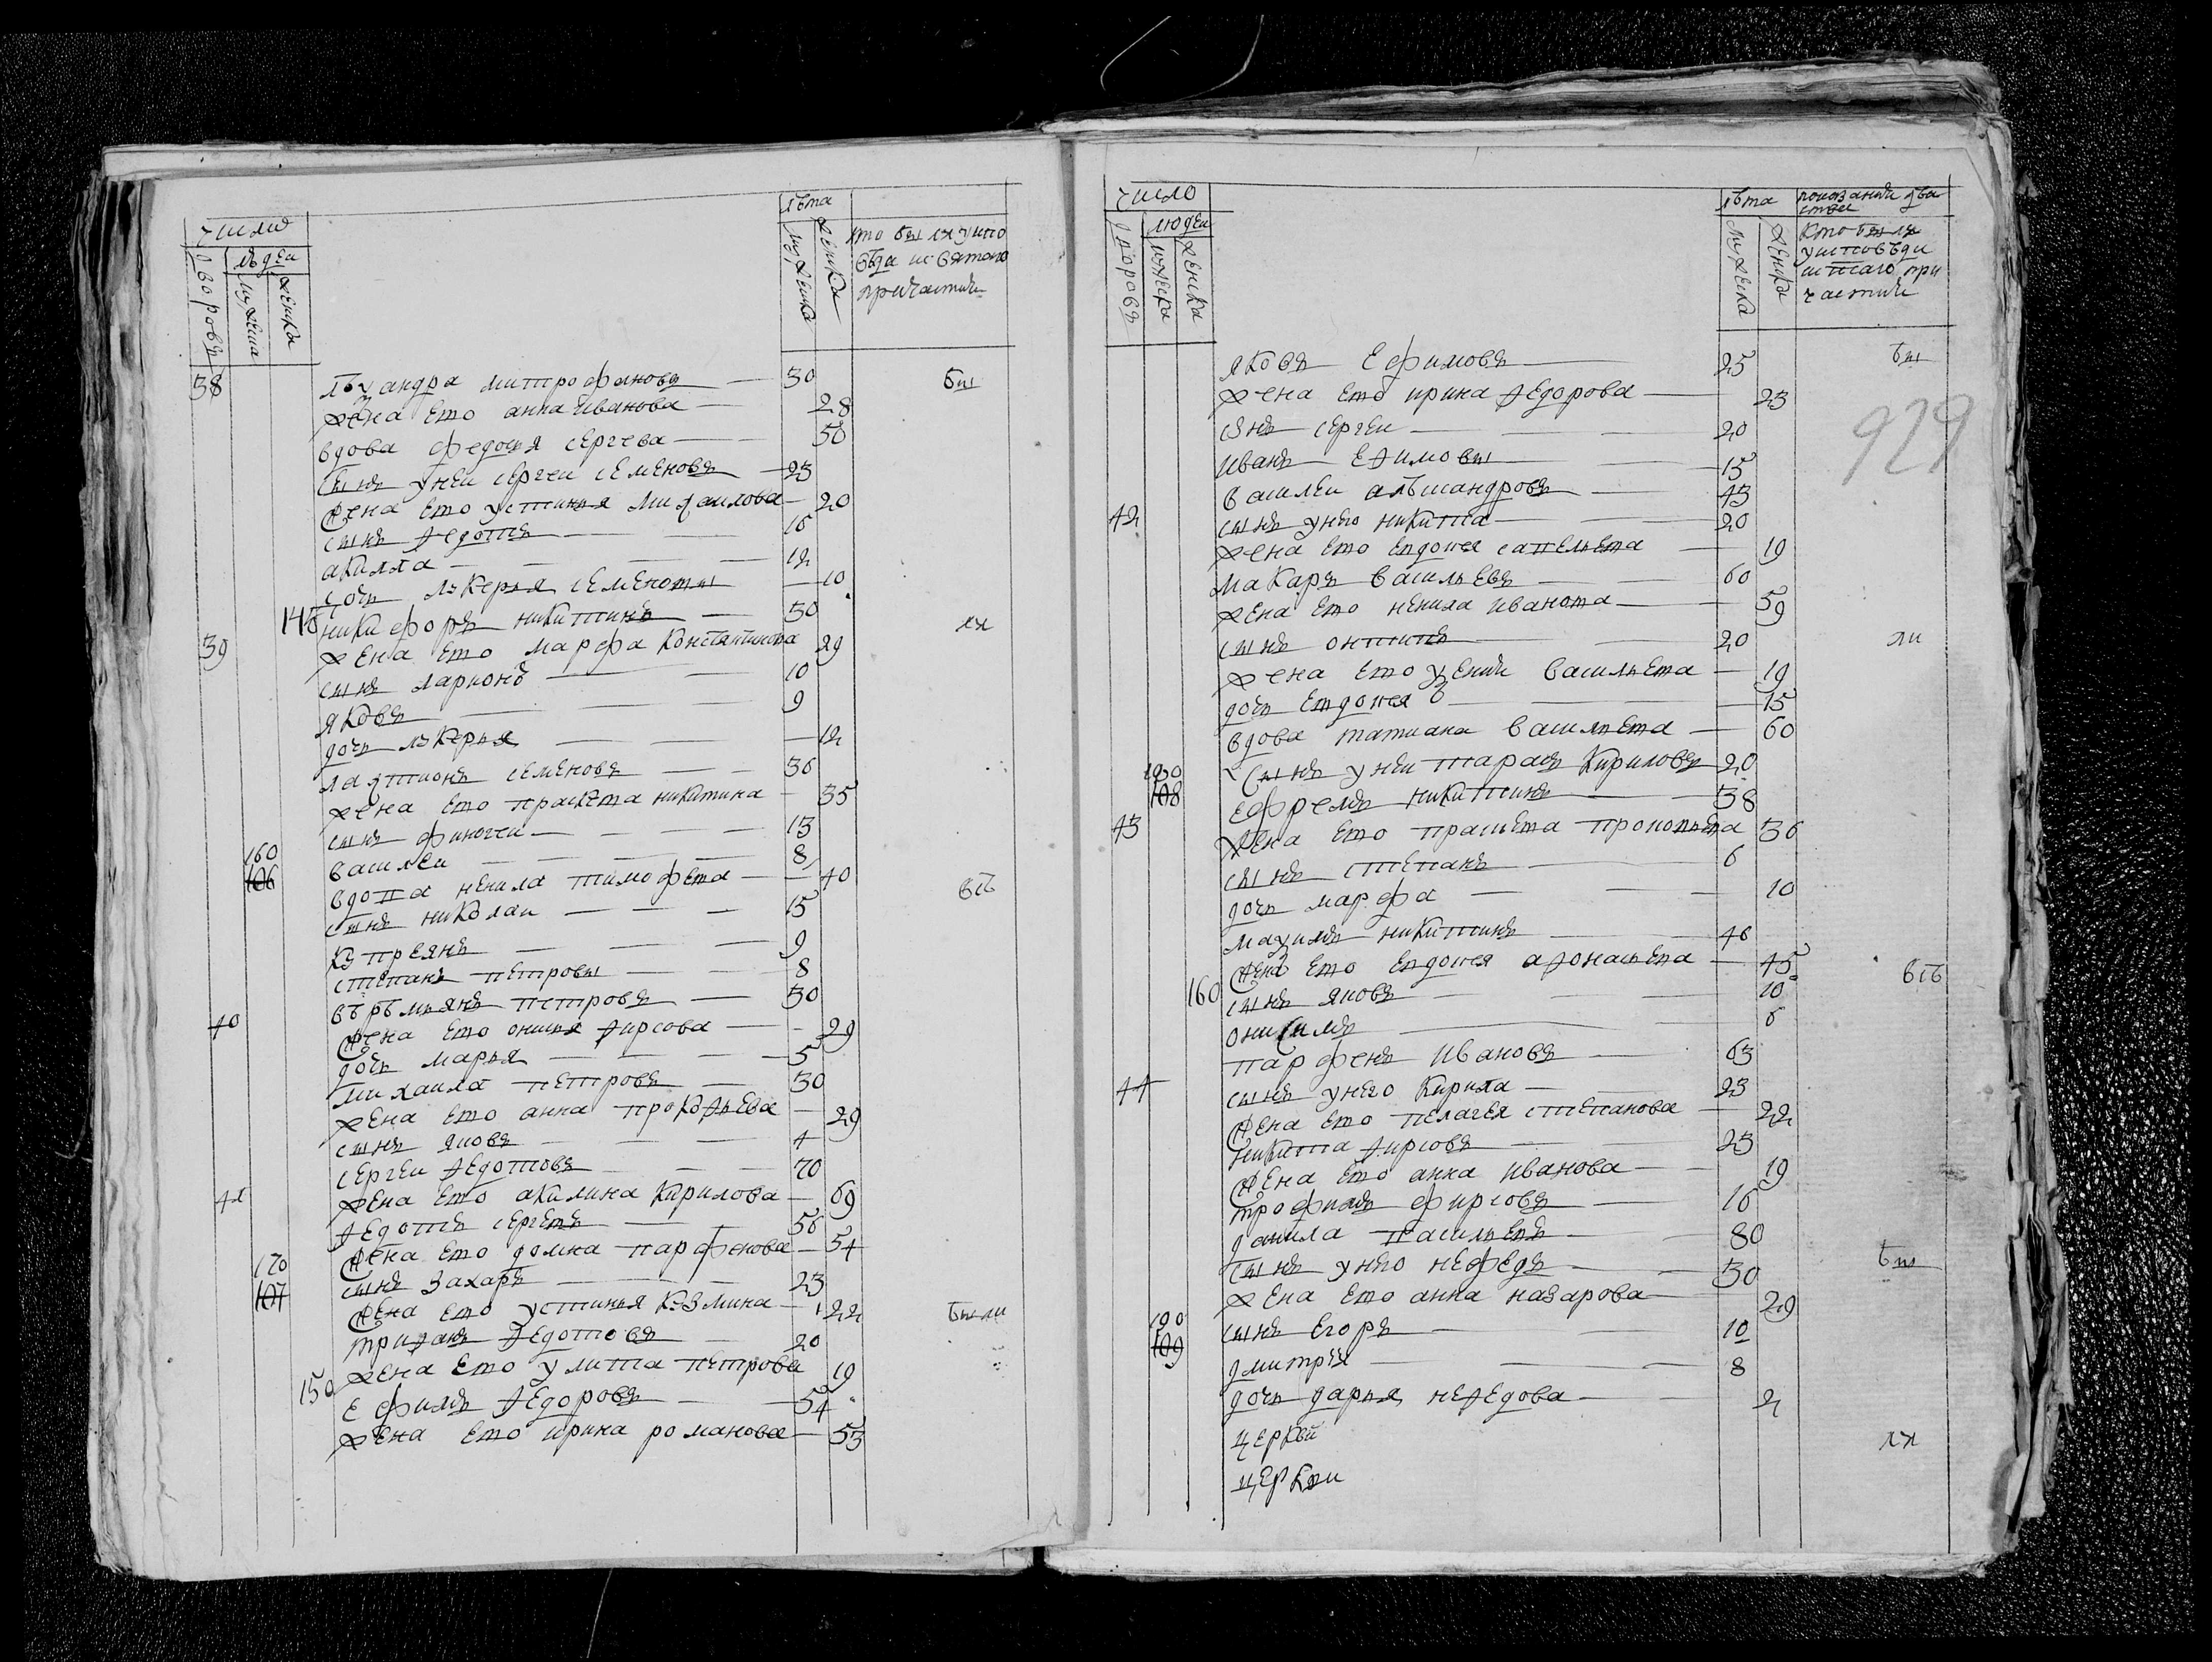 число
людеи
дворовъ
мужеска
женска
лѣта
мужеска
женска
кто был их у испо
вѣди и святаго
причастия
38 лѣѯандра митрофановъ 30 бы
жена ево анна иванова 28
вдова федосья сергеева 50
сынъ у неи сергеи семеновъ 23
жена ево устинья михаилова 20
сынъ ѳедотъ 16
акилла 12
дочь лукерья семеновы 10
148 никифоръ никитинъ 30 ли
39 жена ево марфа константинова 29
сынъ ларионъ 10
яковъ 9
дочь лукерья 12
лаѯтионъ семеновъ 36
жена ево праскева никитина 35
сынъ финогеи 13
160 василеи 8
106 вдова ненила тимофева 40 всѣ
сынъ николаи 15
куприянъ 9
степанъ петровы 8
40 петровъ 30
жена ево онисья ѳирсова 29
дочь марья 5
михаила петровъ 30
жена ево анна прокоѳьева 29
сынъ яковъ 4
41 сергеи ѳедотовъ 70
жена ево акилина кирилова 69
ѳедотъ сергевъ 56
жена ево домна парфенова 54
170 сынъ захаръ 23
107 жена ево устинья козмина 22 были
триѳанъ ѳедотовъ 20
жена ево улита петрова 19
150 ефимъ ѳедоровъ 54
жена ево ирина романова 53
число
людеи
дворовъ
мужеска
женска
лѣта
мужеска
женска
показании дѣи
ствия
кто были
у исповѣди
и стаго при
частия
яковъ ефимовъ 25 бы
жена ево ирина ѳедорова 23
929
сынъ сергеи 20
иванъ еѳимовы 15
василеи алѣѯандровъ 43
42 сынъ у него никита 20
жена ево евдокея савельева 19
макаръ васильевъ 60
жена ево ненила иванова 59
сынъ онтипъ 20 ли
жена ево ѯения васильева 19
дочь евдокея 15
вдова татиана васильева 60
180 сынъ у неи тарасъ кириловъ 20
108 ефремъ никитинъ 38
43 жена ево прасковьева прокопьева 36
сынъ степанъ 6
дочь марфа 10
маѯимъ никитинъ 46
жена ево евдокея аѳонасьева 45 всѣ
160 сынъ яковъ 10
онисимъ 6
парфенъ ивановъ 63
44 сынъ у него кирила 23
жена ево пелагея степанова 22
никита ѳирсовъ 23
жена ево анна иванова 19
трофимъ фирсовъ 16
данила васильевъ 80
сынъ у него нефедъ 30 бы
жена ево анна назарова 29
190 сынъ егоръ 10
109 дмитрѣи 8
дочь дарья неѳедова 2
церкви
церкви
ли